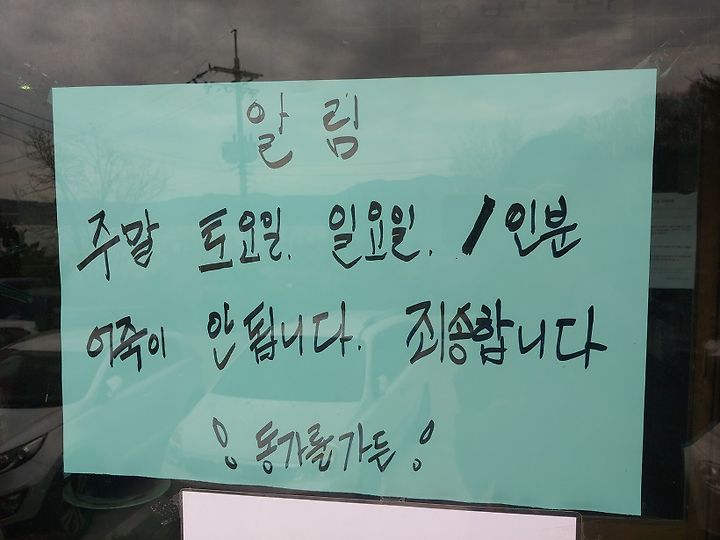 알림
주말 토요일. 일요일. 1인분
어죽이 안됩니다. 죄송합니다